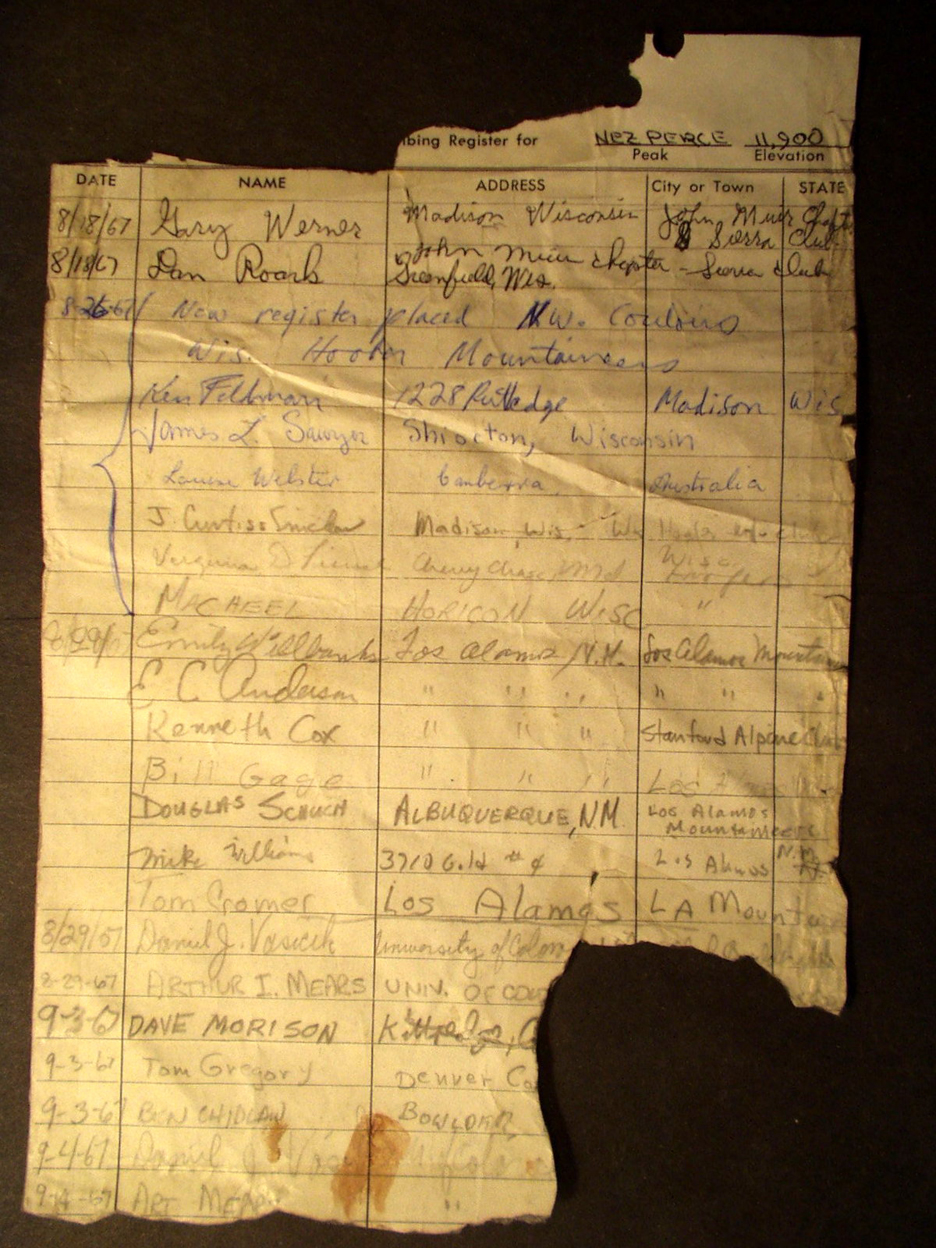 bing Register for NEZ PERCE 11,900
Peak Elevation
DATE NAME ADDRESS City or Town STATE
8/18/67 Gary Werner Madison Wisconsin John Muir Chapt
Sierra Club
8/18/67 Dan Roark John Muir chapter - Sierra club
Greenfield, Wis.
8-26-67 New register placed NW. Couloirs
Wis. Hoofer Mountaineers
Ken Feldman 1228 Rutledge Madison Wis
James L. Sawyer Shiocton, Wisconsin
Louise Webster Canberra, Australia
J. Curtiss Sinclair Madison, Wis.
Virginia D Chevy Chase, Md Wisc
MACHEEL HORICON WISC "
Emily Willbanks Los Alamos N.M. Los Alamos Mountain
E C Anderson " " " " " "
Kenneth Cox " " " Stanford Alpine Club
Bill Gage " " " Los
DOUGLAS SCHUCH ALBUQUERQUE, NM. LOS Alamos
Mountaineers
Mike Williams 3710 G. #4 Los Alamos N.M.
Tom Cromer Los Alamos LA Mountain
8/29/67 Daniel J. Vosicek University of Colora
8-29-67 ARTHUR I. MEARS UNIV. OF COLO
9-3-67 DAVE MORISON Kittredge, C
9-3-67 Tom Gregory Denver Co
9-3-67 BEN CHIDLAW BOWLDER,
9-4-67 Daniel J Vos U of Colo
9-4-67 ART MEARS "